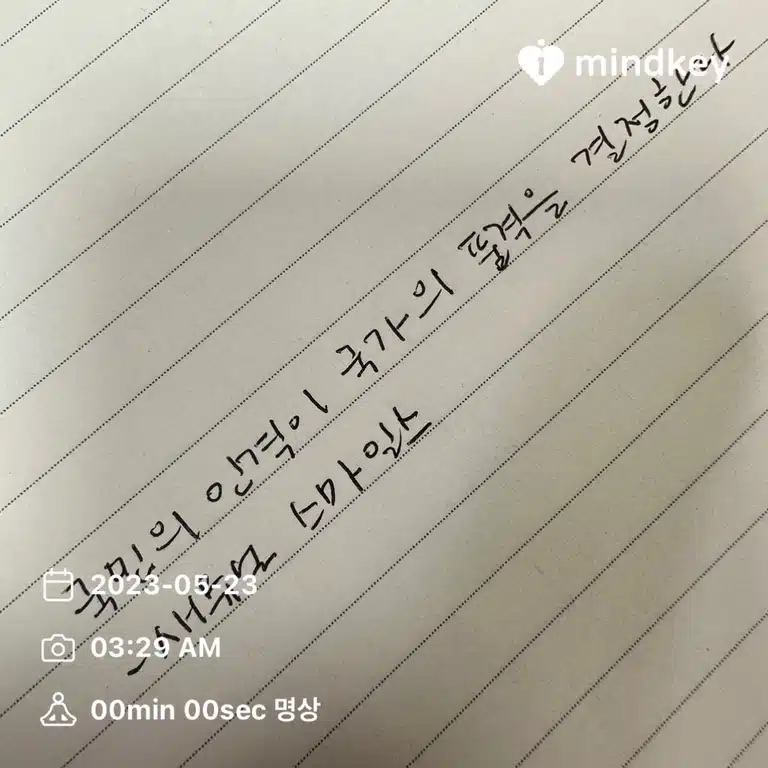 mindkey
국민의 인격이 국가의 품격을 결정한다
- 새뮤얼 스마일스
2023-05-23
03:29 AM
00min 00sec 명상